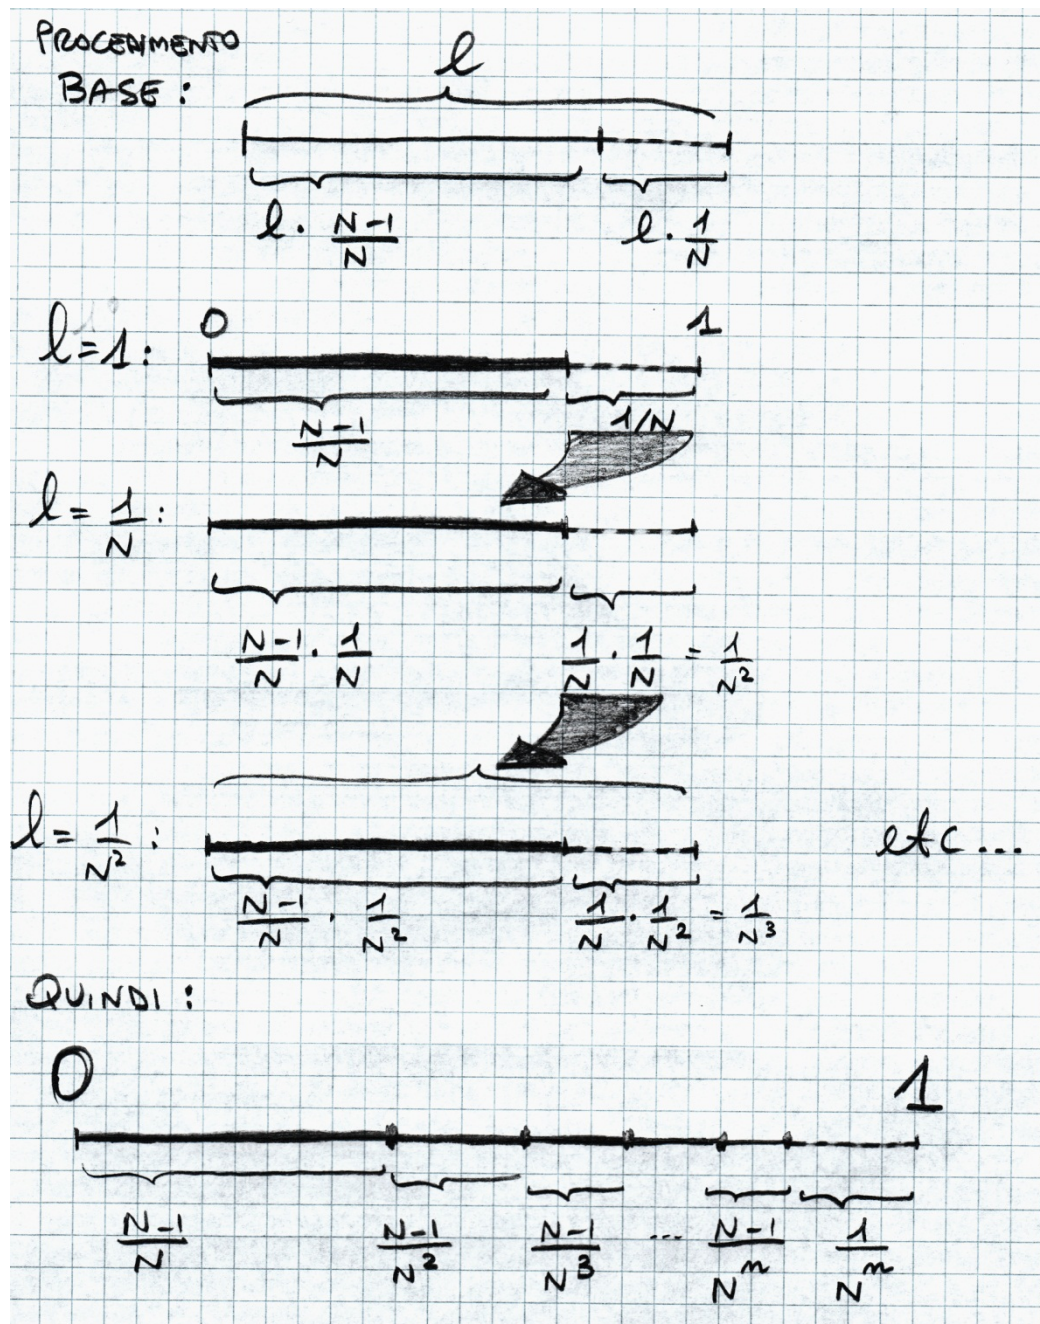 PROCEDIMENTO
BASE:
l
l · (N-1)/N l · 1/N
0 1
l=1:
(N-1)/N 1/N
l = 1/N :
(N-1)/N · 1/N 1/N · 1/N = 1/N²
l = 1/N² : etc...
(N-1)/N · 1/N² 1/N · 1/N² = 1/N³
QUINDI:
0 1
(N-1)/N (N-1)/N² (N-1)/N³ ... (N-1)/Nⁿ 1/Nⁿ